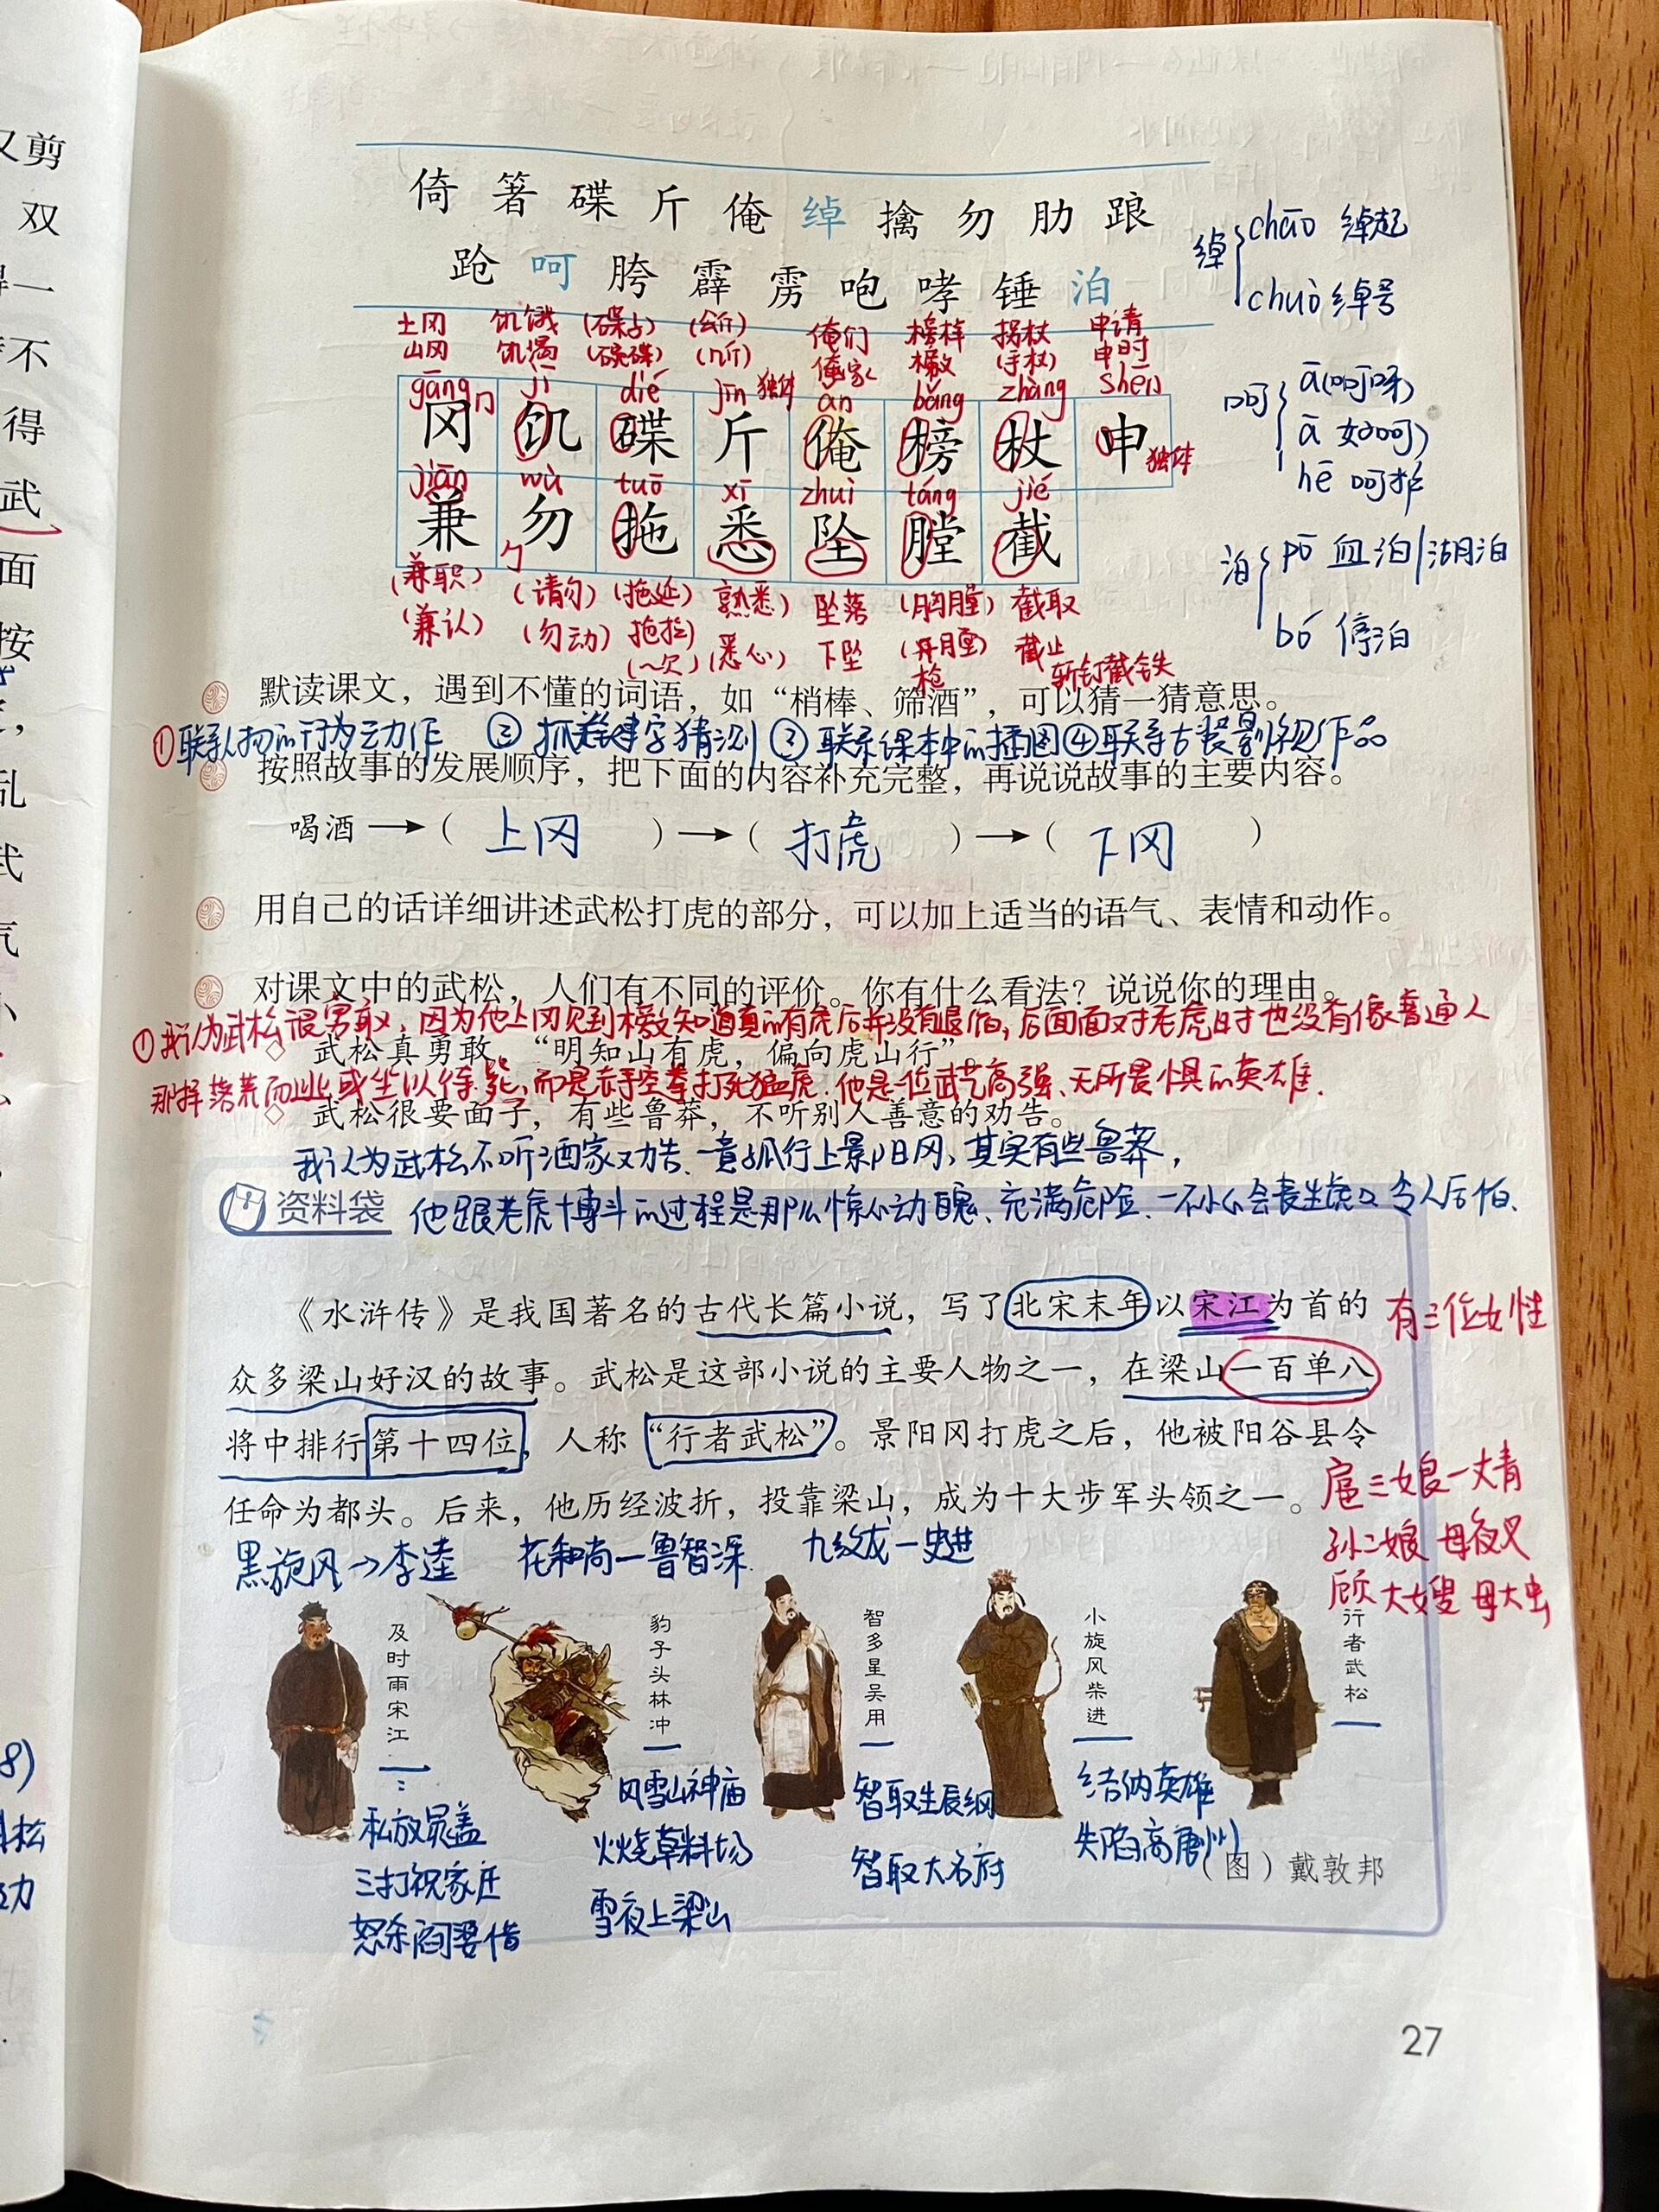 又剪
双
得一
不
得
武
面
按
乱
武
气
8)
倚 箸 碟 斤 俺 绰 擒 勿 肋 踉
跄 呵 胯 霹 雳 咆 哮 锤 泊
绰 chāo 绰起
chuò 绰号
呵 ā(呵呀)
ā 好呵)
hē 呵护
泊 pō 血泊/湖泊
bó 停泊
土冈 饥饿 (碟占) (公斤) 俺们 榜样 拐杖 申请
山冈 饥渴 (碗碟) (几斤) 俺家 榜文 (手杖) 申时
gāng jī dié jīn 独体 ǎn bǎng zhàng shēn
冈 饥 碟 斤 俺 榜 杖 申 独体
jiān wù tuō xī zhuì táng jié
兼 勿 拖 悉 坠 膛 截
(兼职) (请勿) (拖延) 熟悉) 坠落 (胸膛) 截取
(兼认) (勿动) 拖拉) (悉心) 下坠 (开膛) 截止
(~欠) 枪 斩钉截铁
默读课文，遇到不懂的词语，如“梢棒、筛酒”，可以猜一猜意思。
①联系人物的行为动作 ② 抓关键字猜测 ③ 联系课本中的插图④联系古装影视作品
按照故事的发展顺序，把下面的内容补充完整，再说说故事的主要内容。
喝酒 → ( 上冈 ) → ( 打虎 ) → ( 下冈 )
用自己的话详细讲述武松打虎的部分，可以加上适当的语气、表情和动作。
对课文中的武松，人们有不同的评价。你有什么看法？说说你的理由。
①我认为武松很勇敢，因为他上冈见到榜文知道真的有虎后并没有退怕，后面面对老虎时也没有像普通人
◇ 武松真勇敢，“明知山有虎，偏向虎山行”。
那样落荒而逃或坐以待毙，而是赤手空拳打死猛虎.他是一位武艺高强、无所畏惧的英雄.
◇ 武松很要面子，有些鲁莽，不听别人善意的劝告。
我认为武松不听酒家劝告、一意孤行上景阳冈，其实有些鲁莽，
资料袋 他跟老虎博斗的过程是那么惊心动魄、充满危险、一不小心会丧生虎口 令人后怕.
《水浒传》是我国著名的古代长篇小说，写了北宋末年以宋江为首的
有三位女性
众多梁山好汉的故事。武松是这部小说的主要人物之一，在梁山一百单八
将中排行第十四位，人称“行者武松”。景阳冈打虎之后，他被阳谷县令
任命为都头。后来，他历经波折，投靠梁山，成为十大步军头领之一。
扈三娘一丈青
孙二娘 母夜叉
顾大嫂 母大虫
黑旋风→李逵 花和尚—鲁智深 九纹龙—史进
及时雨宋江
豹子头林冲
智多星吴用
小旋风柴进
行者武松
私放晁盖
三打祝家庄
怒杀阎婆惜
风雪山神庙
火烧草料场
雪夜上梁山
智取生辰纲
智取大名府
结纳英雄
失陷高唐州
（图）戴敦邦
27